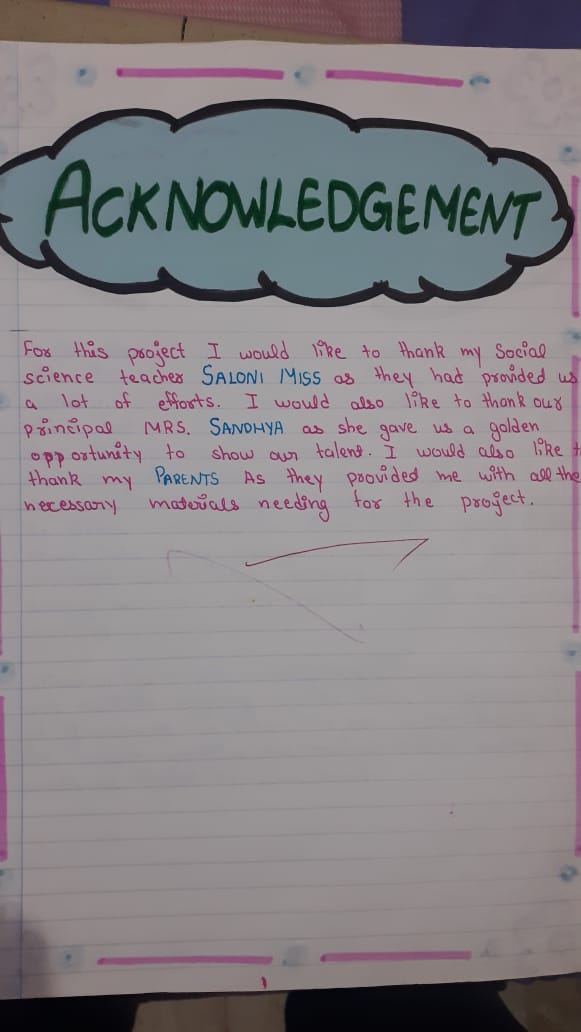 ACKNOWLEDGEMENT
For this project I would like to thank my Social
science teacher SALONI MISS as they had provided us
a lot of efforts. I would also like to thank our
principal MRS. SANDHYA as she gave us a golden
opportunity to show our talent. I would also like t
thank my PARENTS As they provided me with all the
necessary materials needing for the project.
1